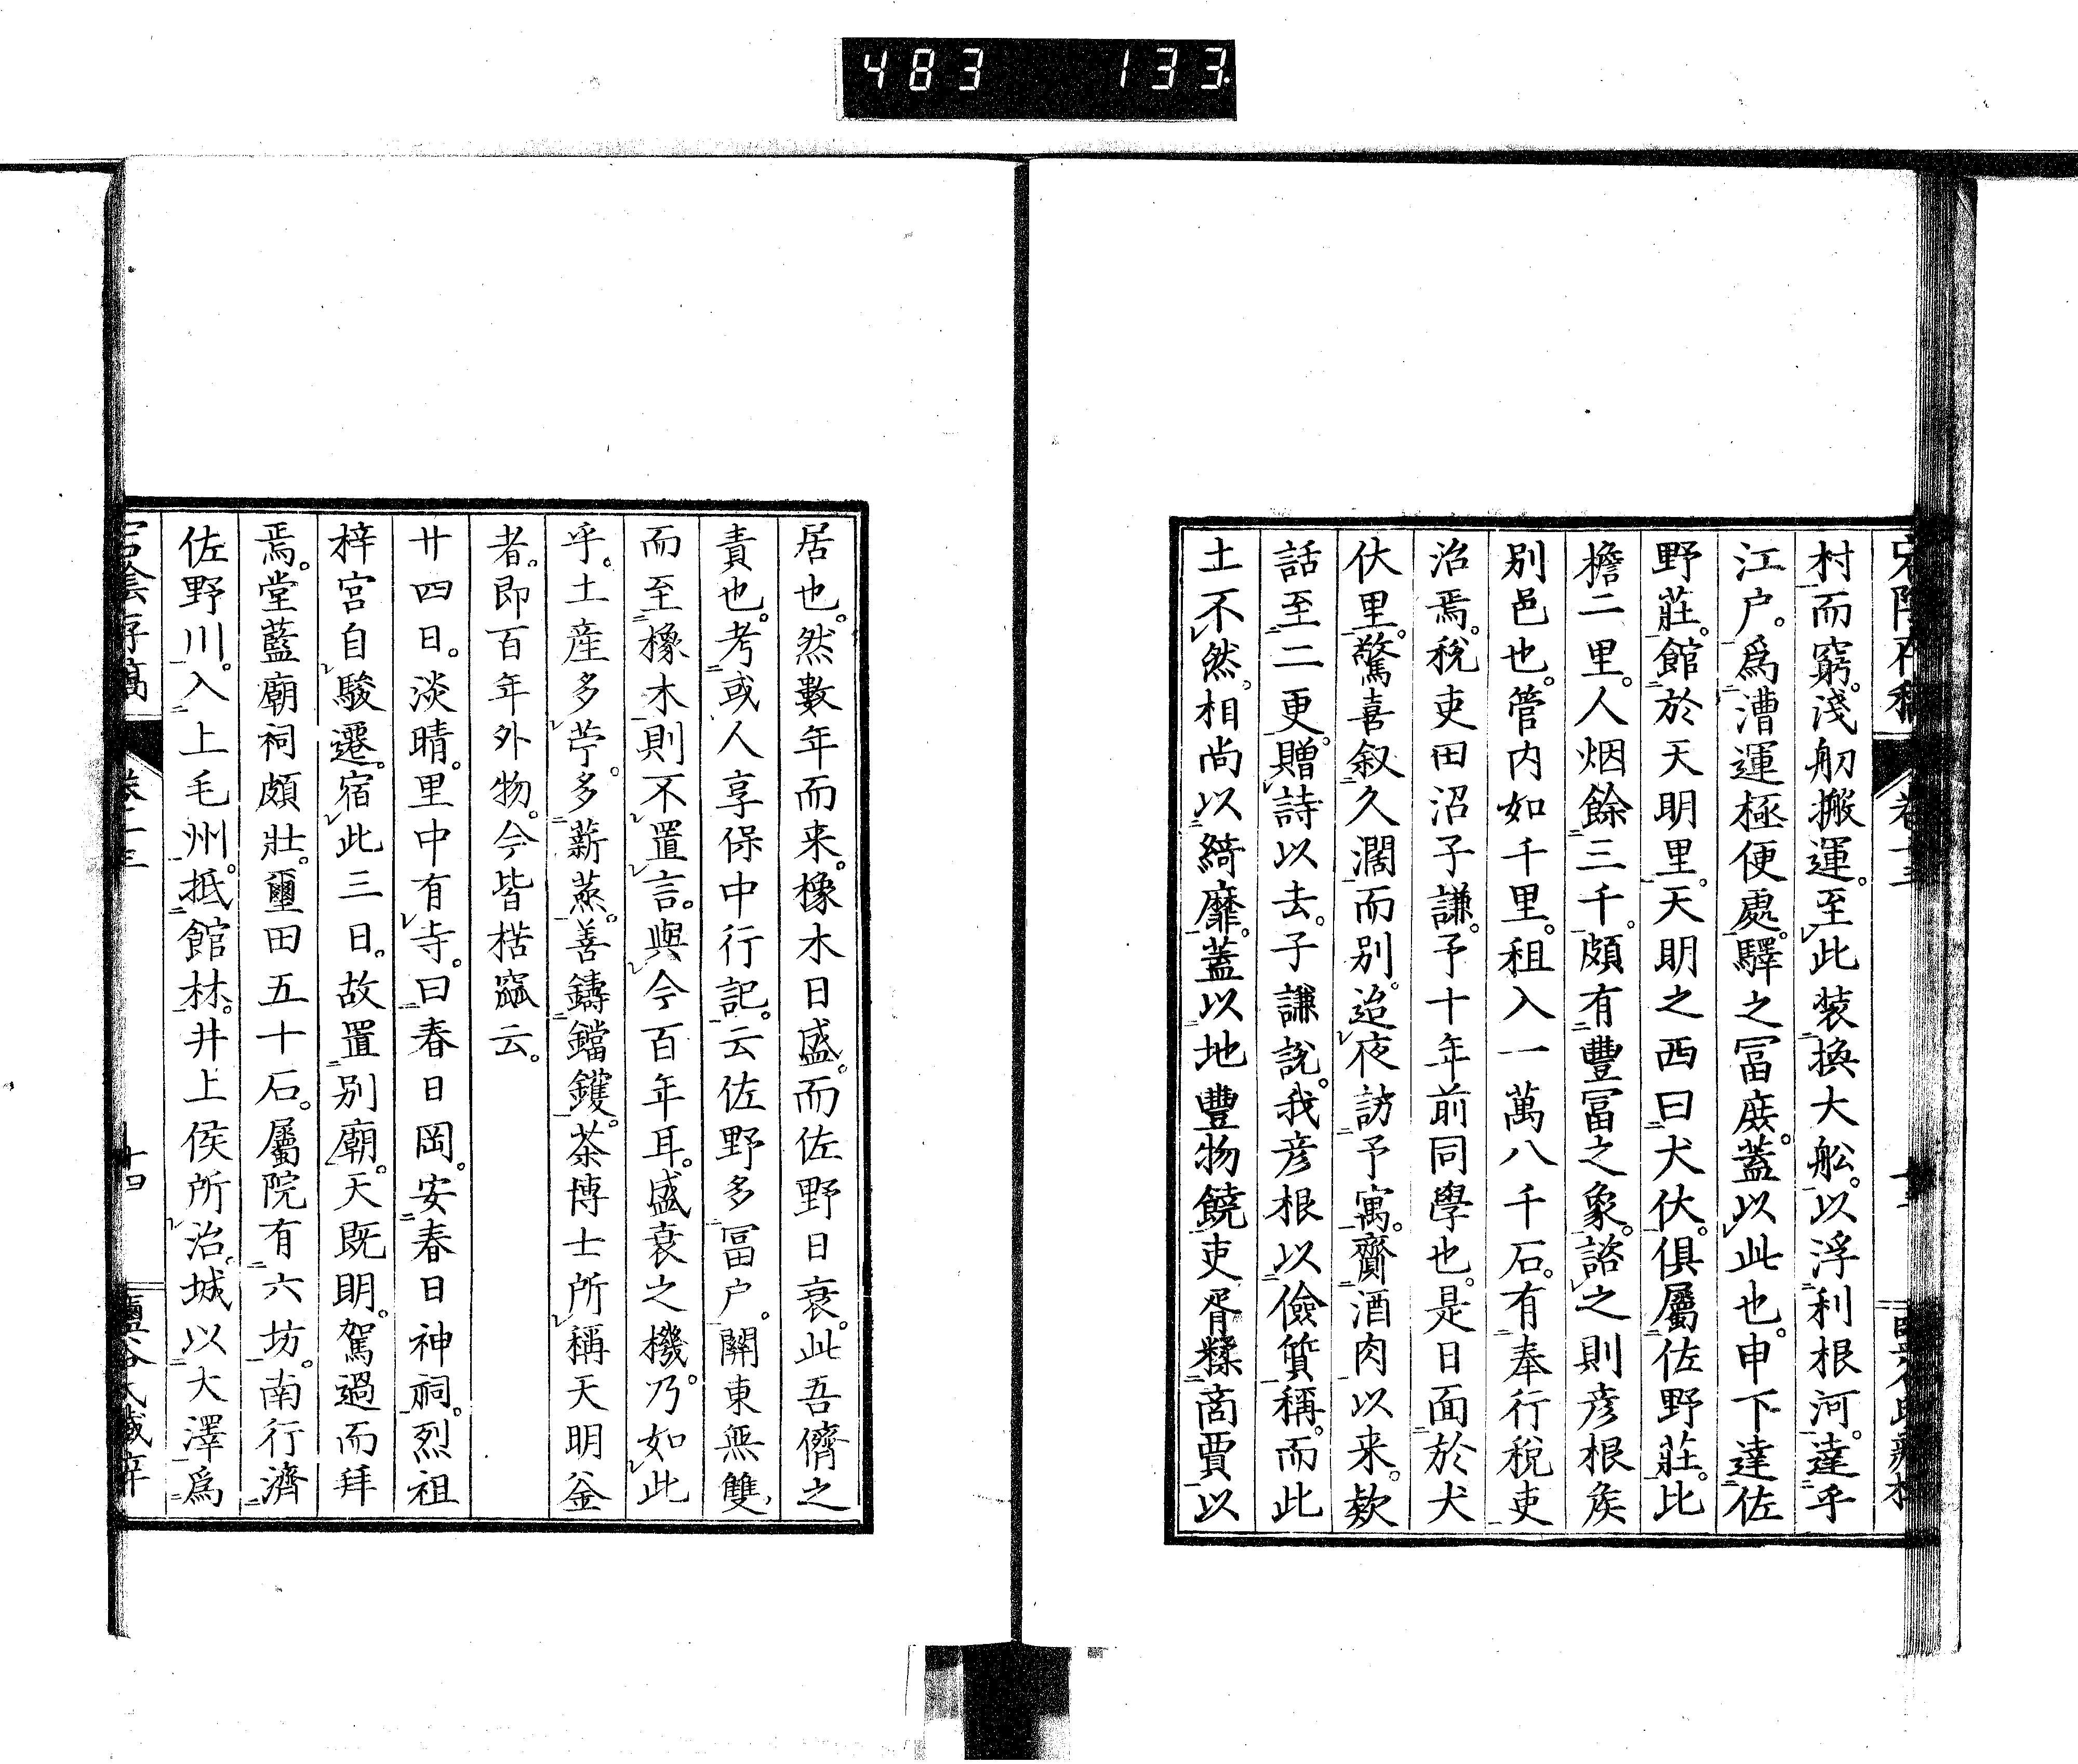 483 133
村而窮。淺舠搬運。至此装換大舩。以浮利根河。達乎
江户。爲漕運極便處。驛之冨庶。蓋以此也。申下達佐
野莊。館於天明里。天明之西曰犬伏。俱屬佐野莊。比
檐二里。人烟餘三千。頗有豐冨之象。諮之則彦根矦
别邑也。管内如千里。租入一萬八千石。有奉行税吏
治焉。税吏田沼子謙。予十年前同學也。是日面於犬
伏里。驚喜叙久濶而别。迨夜訪予寓。齎酒肉以来。欵
話至二更。贈詩以去。子謙説。我彦根以儉質稱。而此
土不然。相尚以綺靡。蓋以地豐物饒。吏胥糅商賈以
居也。然數年而来。橡木日盛。而佐野日衰。此吾儕之
責也。考或人享保中行記。云佐野多冨户。關東無雙。
而至橡木則不置言。與今百年耳。盛衰之機。乃如此
乎。土産多苧。多薪蒸。善鑄鐺鑊。茶博士所稱天明釜
者。即百年外物。今皆楛窳云。
廿四日。淡晴。里中有寺。曰春日岡。安春日神祠。烈祖
梓宫自駿遷。宿此三日。故置别廟。天既明。駕過而拜
焉。堂藍廟祠頗壯。璽田五十石。屬院有六坊。南行濟
佐野川。入上毛州。抵館林。井上侯所治。城以大澤爲
卷十三
十四